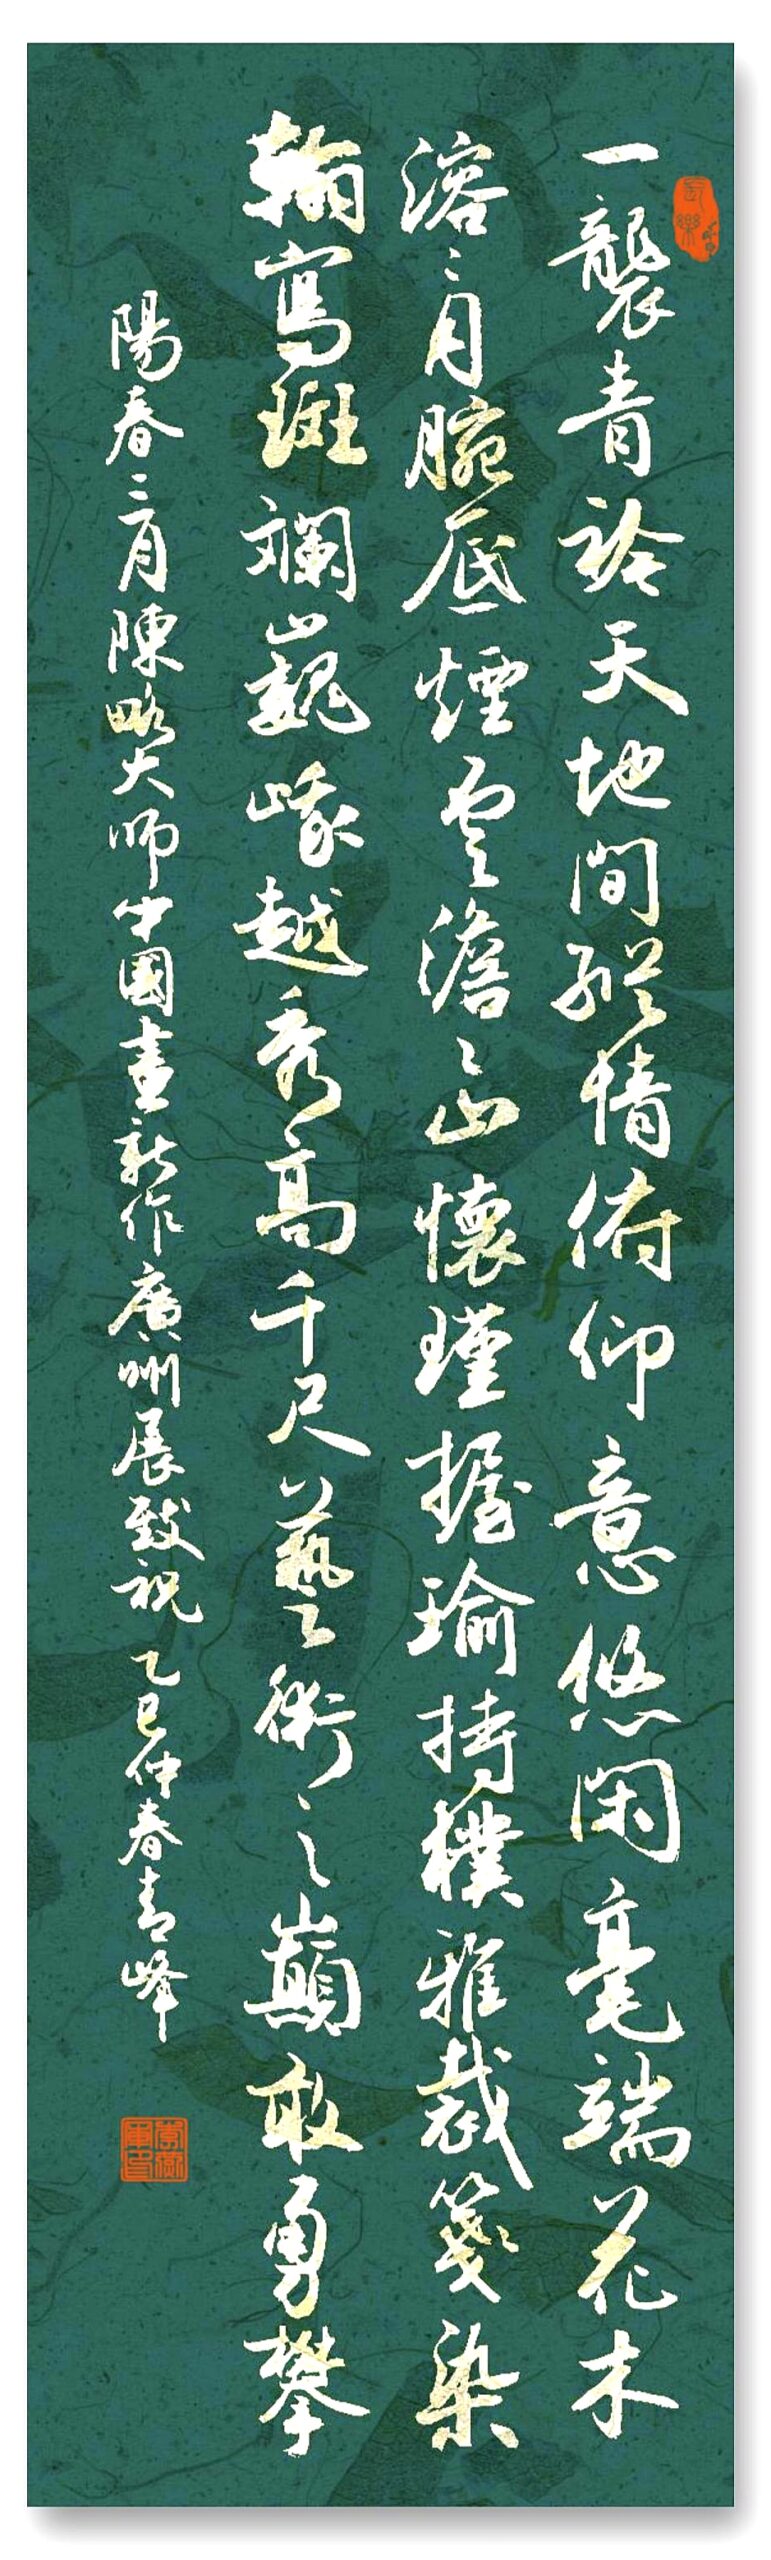 一襲青衿天地間縱情俯仰意悠閑毫端花木
溶〻月腕底煙雲澹〻山懷瑾握瑜持樸雅裁箋染
翰寫斑斕巍峨越秀高千尺藝術之巔敢勇攀
陽春三月陳略大師中國畫新作廣州展致祝乙巳仲春青峰